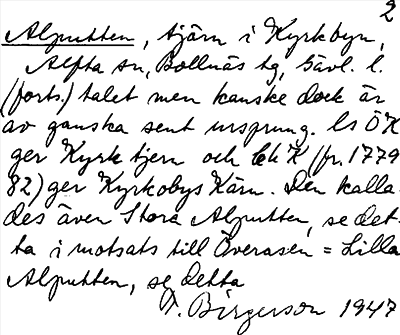 2
Alputten, tjärn i Kyrkbyn,
Alfta sn, Bollnäs tg, Gävl. l.
(forts.) talet men kanske dock är
av ganska sent ursprung. Ls ÖK
ger Kyrktjern och Ek K (fr. 1779
82) ger Kyrkobys Kärn. Den kalla-
des även Stora Alputten, se det-
ta i motsats till Överasen = Lilla
Alputten, se detta
F. Birgerson 1947